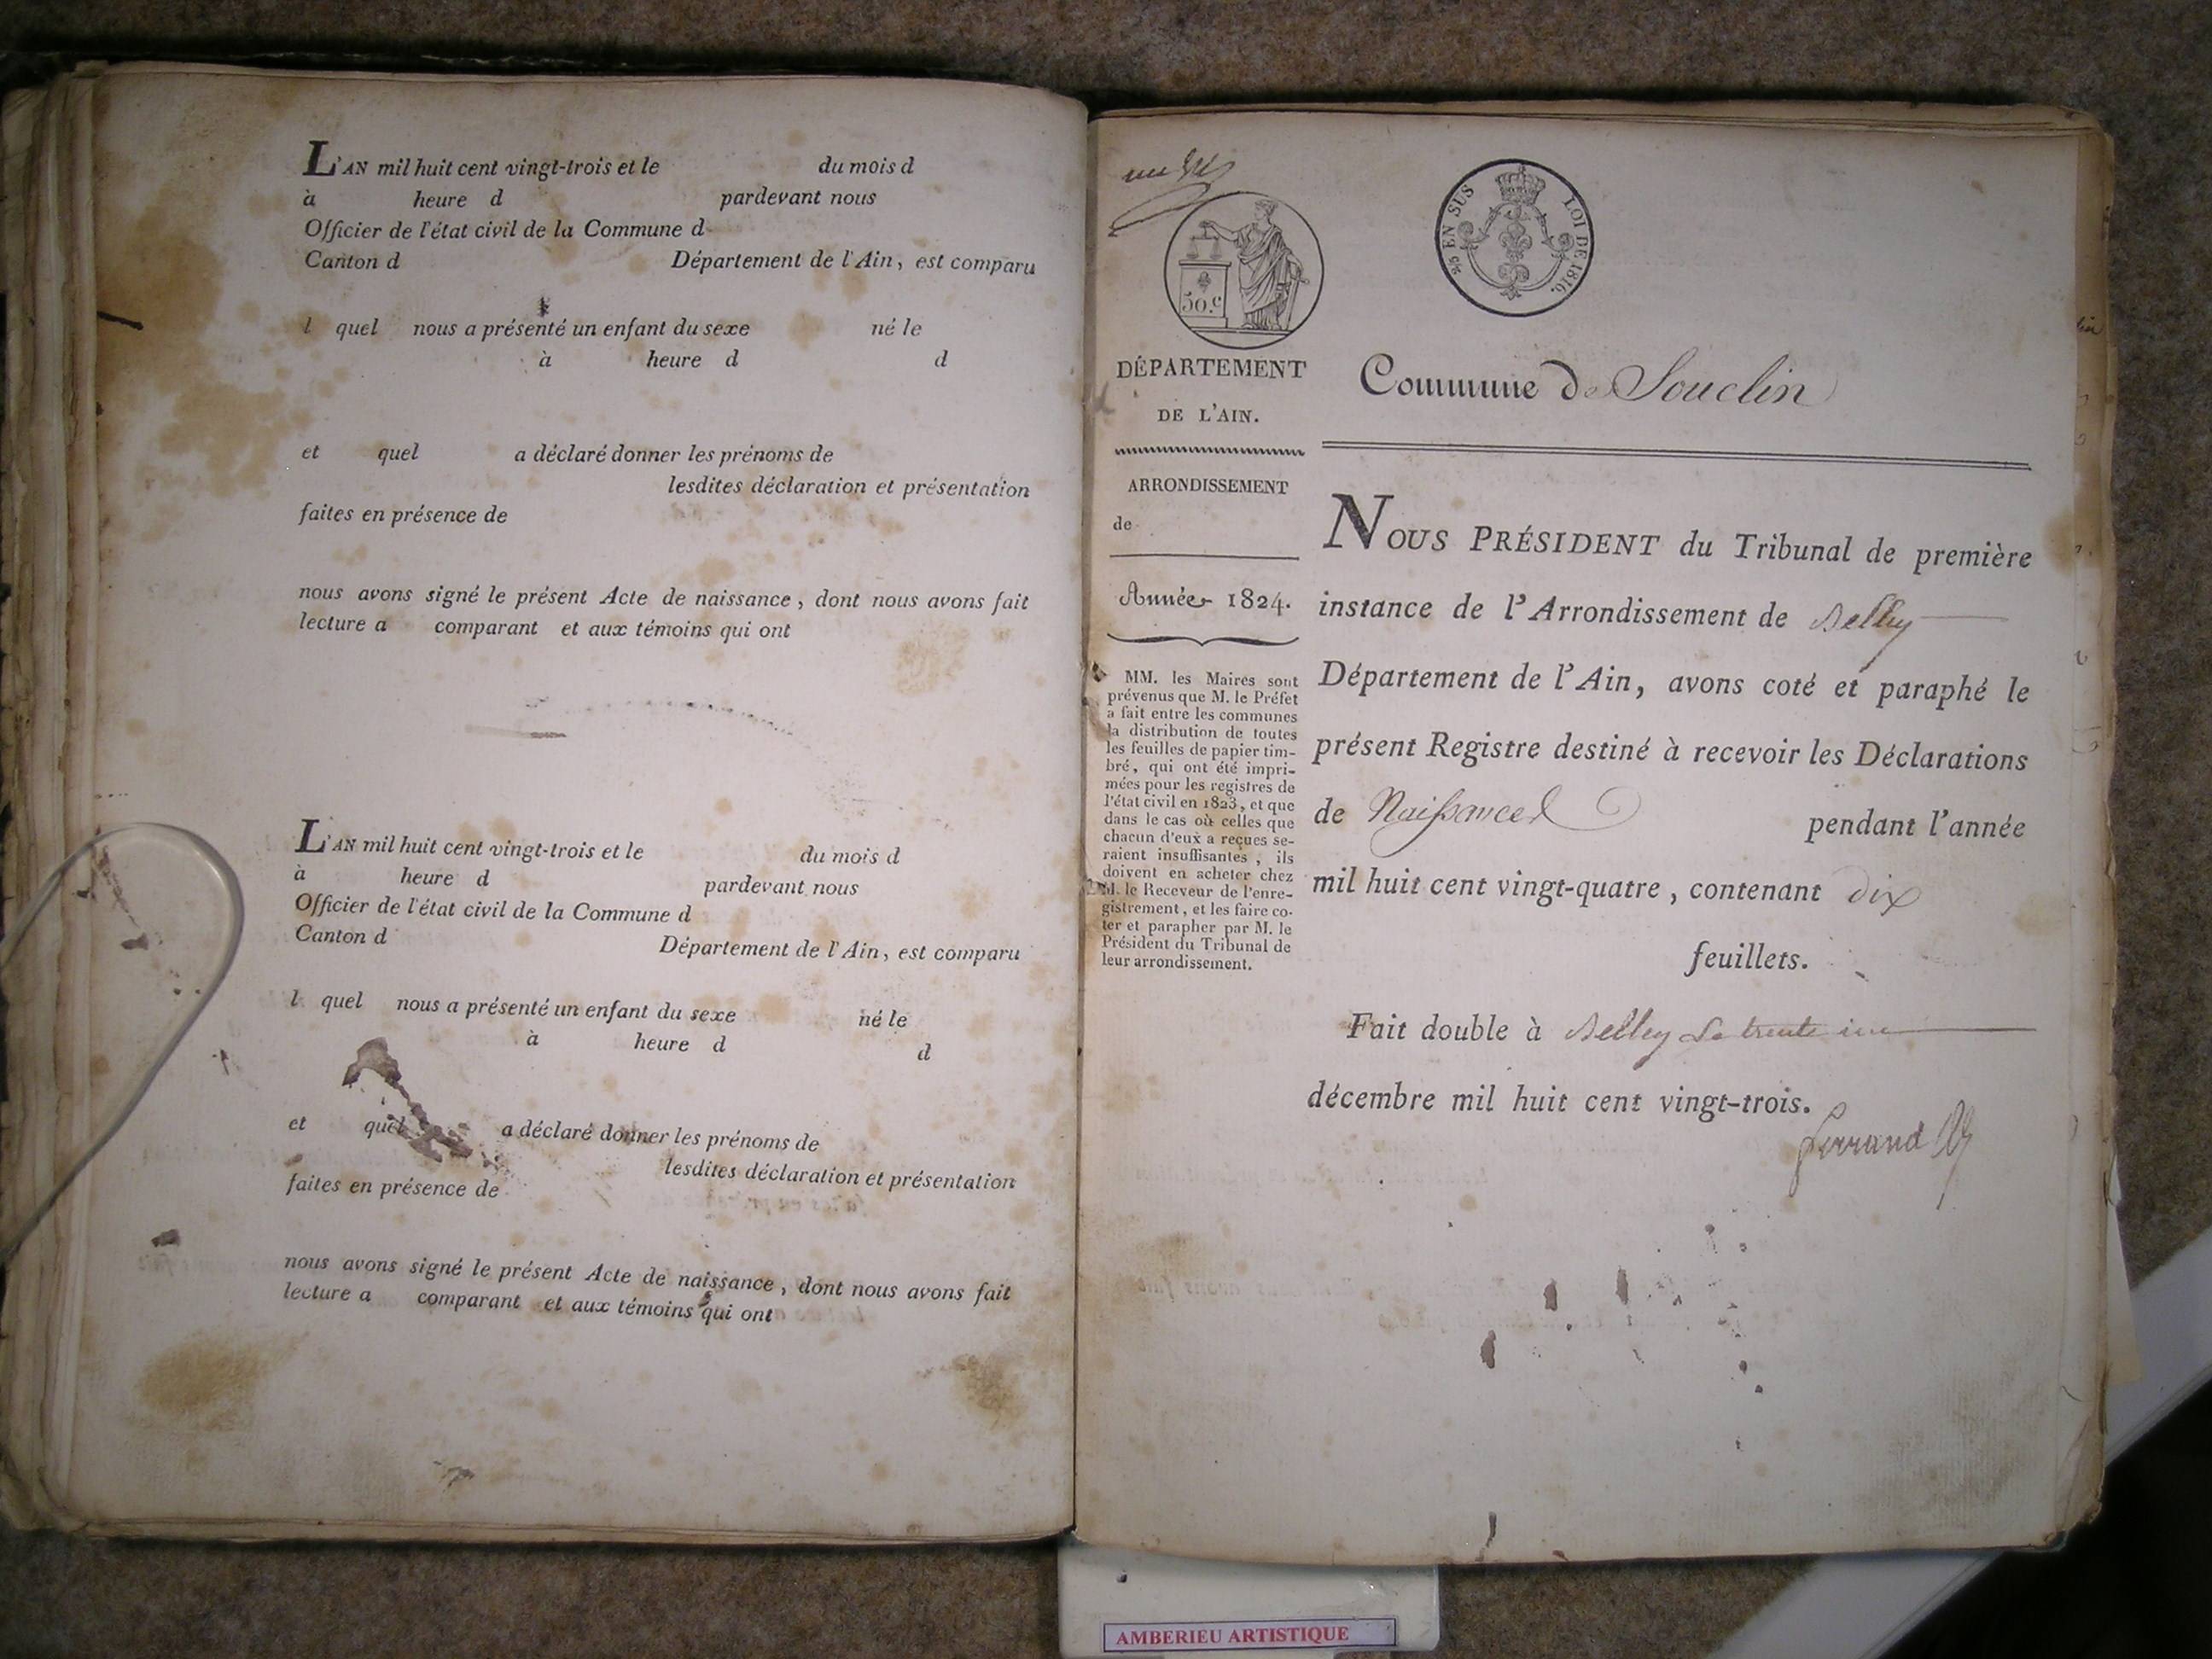 L'AN mil huit cent vingt-trois et le du mois d
à heure d pardevant nous
Officier de l'état civil de la Commune d
Canton d Département de l'Ain, est comparu
l quel nous a présenté un enfant du sexe né le
à heure d d
et quel a déclaré donner les prénoms de
lesdites déclaration et présentation
faites en présence de
nous avons signé le présent Acte de naissance, dont nous avons fait
lecture a comparant et aux témoins qui ont
L'AN mil huit cent vingt-trois et le du mois d
à heure d pardevant nous
Officier de l'état civil de la Commune d
Canton d Département de l'Ain, est comparu
l quel nous a présenté un enfant du sexe né le
à heure d d
et quel a déclaré donner les prénoms de
lesdites déclaration et présentation
faites en présence de
nous avons signé le présent Acte de naissance, dont nous avons fait
lecture a comparant et aux témoins qui ont
50.c
EN SUS LOI DE 1816.
DÉPARTEMENT
DE L'AIN.
ARRONDISSEMENT
de
Année 1824.
MM. les Maires sont
prévenus que M. le Préfet
a fait entre les communes
la distribution de toutes
les feuilles de papier tim-
bré, qui ont été impri-
mées pour les registres de
l'état civil en 1823, et que
dans le cas où celles que
chacun d'eux a reçues se-
raient insuffisantes, ils
doivent en acheter chez
M. le Receveur de l'enre-
gistrement, et les faire co-
ter et parapher par M. le
Président du Tribunal de
leur arrondissement.
Commune de Souclin
NOUS PRÉSIDENT du Tribunal de première
instance de l'Arrondissement de Belley
Département de l'Ain, avons coté et paraphé le
présent Registre destiné à recevoir les Déclarations
de Naissances pendant l'année
mil huit cent vingt-quatre, contenant dix
feuillets.
Fait double à Belley Le trente un
décembre mil huit cent vingt-trois.
AMBERIEU ARTISTIQUE